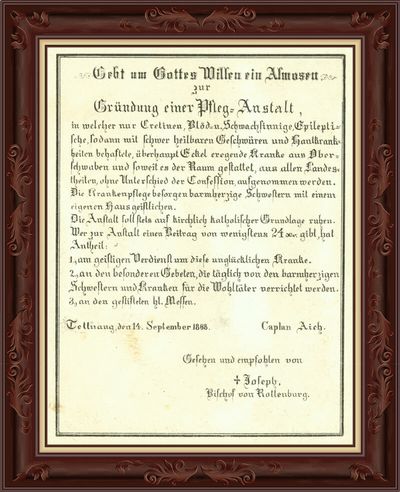 Gebt um Gottes Willen ein Almosen
zur
Gründung einer Pfleg-Anstalt,
in welcher nur Cretinen, Blöd- u. Schwachsinnige, Epilepti-
sche, sodann mit schwer heilbaren Geschwüren und Hautkrank-
heiten behaftete, überhaupt Eckel eregende Kranke aus Ober-
schwaben und soweit es der Raum gestattet, aus allen Landes-
theilen, ohne Unterschied der Confession, aufgenommen werden.
Die Krankenpflege besorgen barmherzige Schwestern mit einem
eigenen Hausgeistlichen.
Die Anstalt soll stets auf kirchlich katholischer Grundlage ruhen.
Wer zur Anstalt einen Beitrag von wenigstens 24 xr. gibt, hat
Antheil:
1, am geistigen Verdienst um diese unglücklichen Kranke.
2, an den besonderen Gebeten, die täglich von den barmherzigen
Schwestern und Kranken für die Wohltäter verrichtet werden.
3, an den gestifteten hl. Messen.
Tettnang, den 14. September 1868. Caplan Aich.
Gesehen und empfohlen von
† Joseph,
Bischof von Rottenburg.